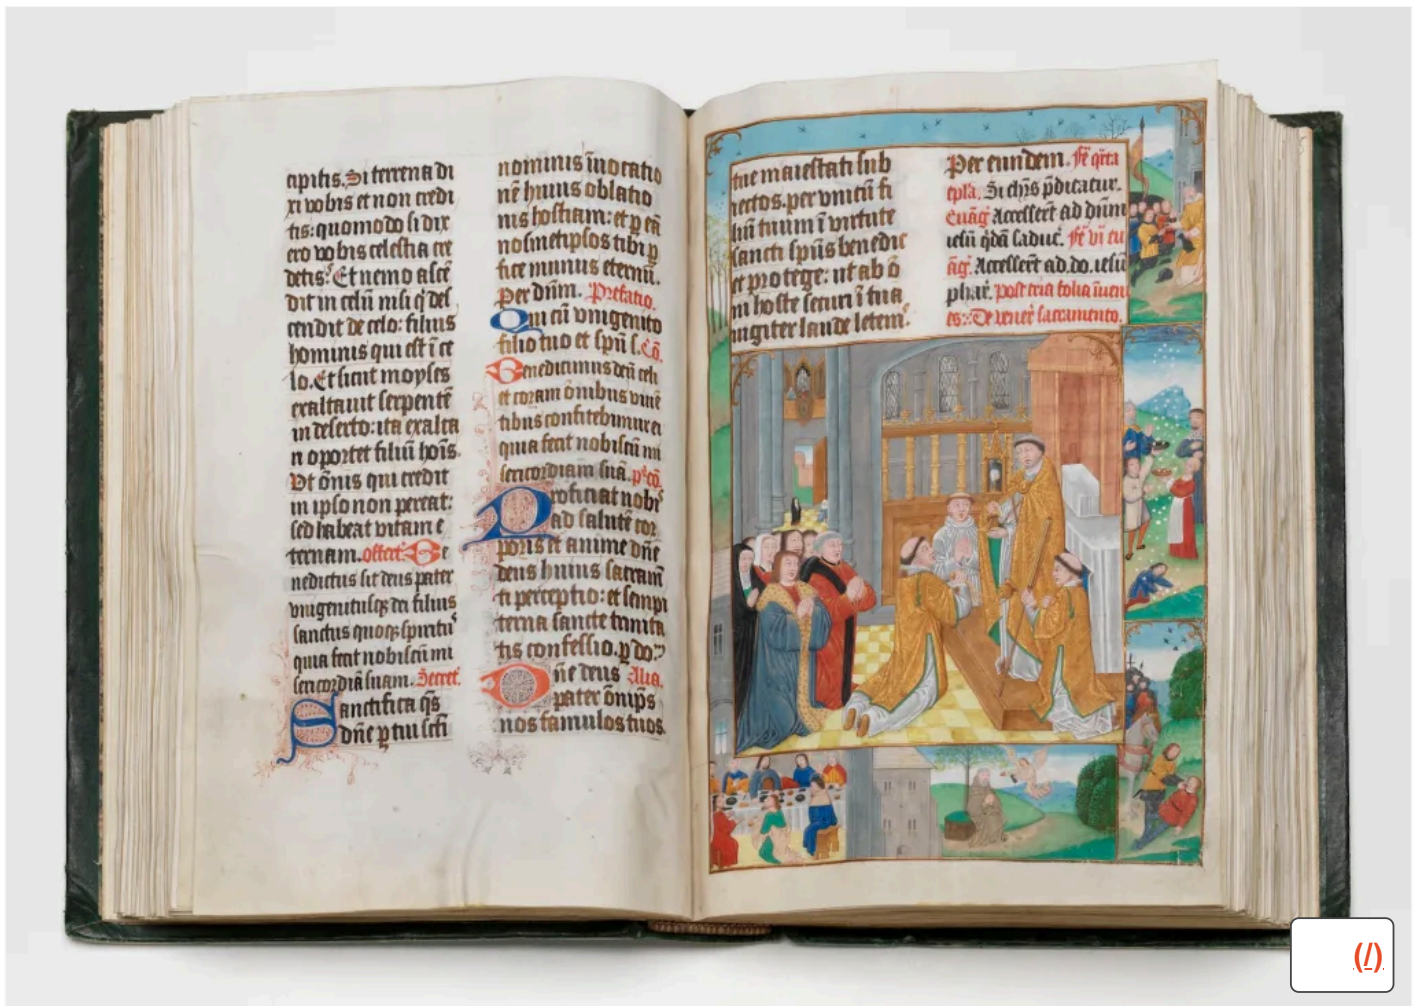 cipitis. Si terrena di
xi vobis et non credi
tis: quomodo si dix
ero vobis celestia cre
detis? Et nemo ascē
dit in celū nisi q̄ des
cendit de celo: filius
hominis qui est ī ce
lo. Et sicut moyses
exaltavit serpentē
in deserto: ita exalta
ri oportet filiū hoīs.
Vt ōnis qui credit
in ipso non pereat:
sed habeat vitam e
ternam. offert. Be
nedictus sit deus pater
vnigenitusq; dei filius
sanctus quoq; spiritu᷒
quia fecit nobiscū mi
sericordiā suam. Secret.
Sanctifica q̄s
dn̄e ꝑ tui scī
nominis īuocatio
nē huius oblatio
nis hostiam: et ꝑ eā
nosmetipsos tibi ꝑ
fice munus eternū.
Per dn̄m. Prefatio.
Qui cū vnigenito
filio tuo et spū s. Cō.
Benedicimus deū celi
et coram ōnibus viuē
tibus confitebimur ei
quia fecit nobiscū mi
sericordiam suā. p᷒ cō.
Proficiat nobis
ad salutē cor
poris et anime dn̄e
deus huius sacramē
ti perceptio: et sempi
terna sancte trinita
tis confessio. ꝑ do:
Dn̄e deus Alia.
pater ōnip̄s
nos famulos tuos
tue maiestati sub
iectos. per vnicū fi
liū tuum ī virtute
sancti spūs benedic
et protege: ut ab ō
ni hoste securi ī tua
iugiter laude letem᷒.
Per eundem. Fē q̄rta
epl̄a. Si chr̄s p̄dicatur.
Euāg̅ Accesserūt ad dn̄m
iesū q̄dā saduc̄. Fē vi eu
āg̅. Accesserūt ad. do. iesū
phar̄. post tria folia īueni
es: De vener̄ sacramento.
(/)